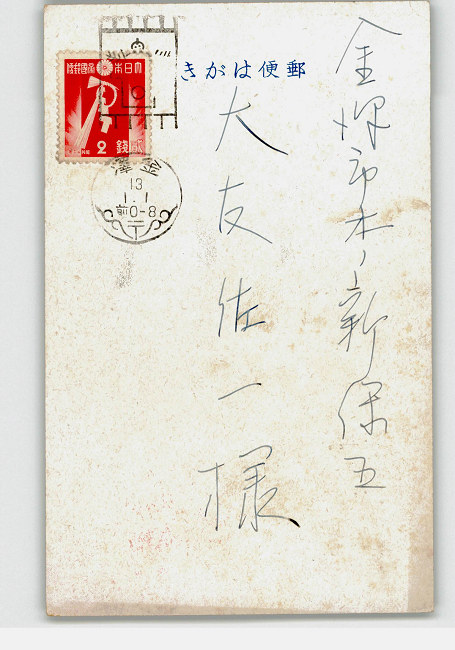 郵便はがき
金澤市木ノ新保五
大友佐一様
大日本帝國郵便
2 錢
金澤
13
1.1
前0-8